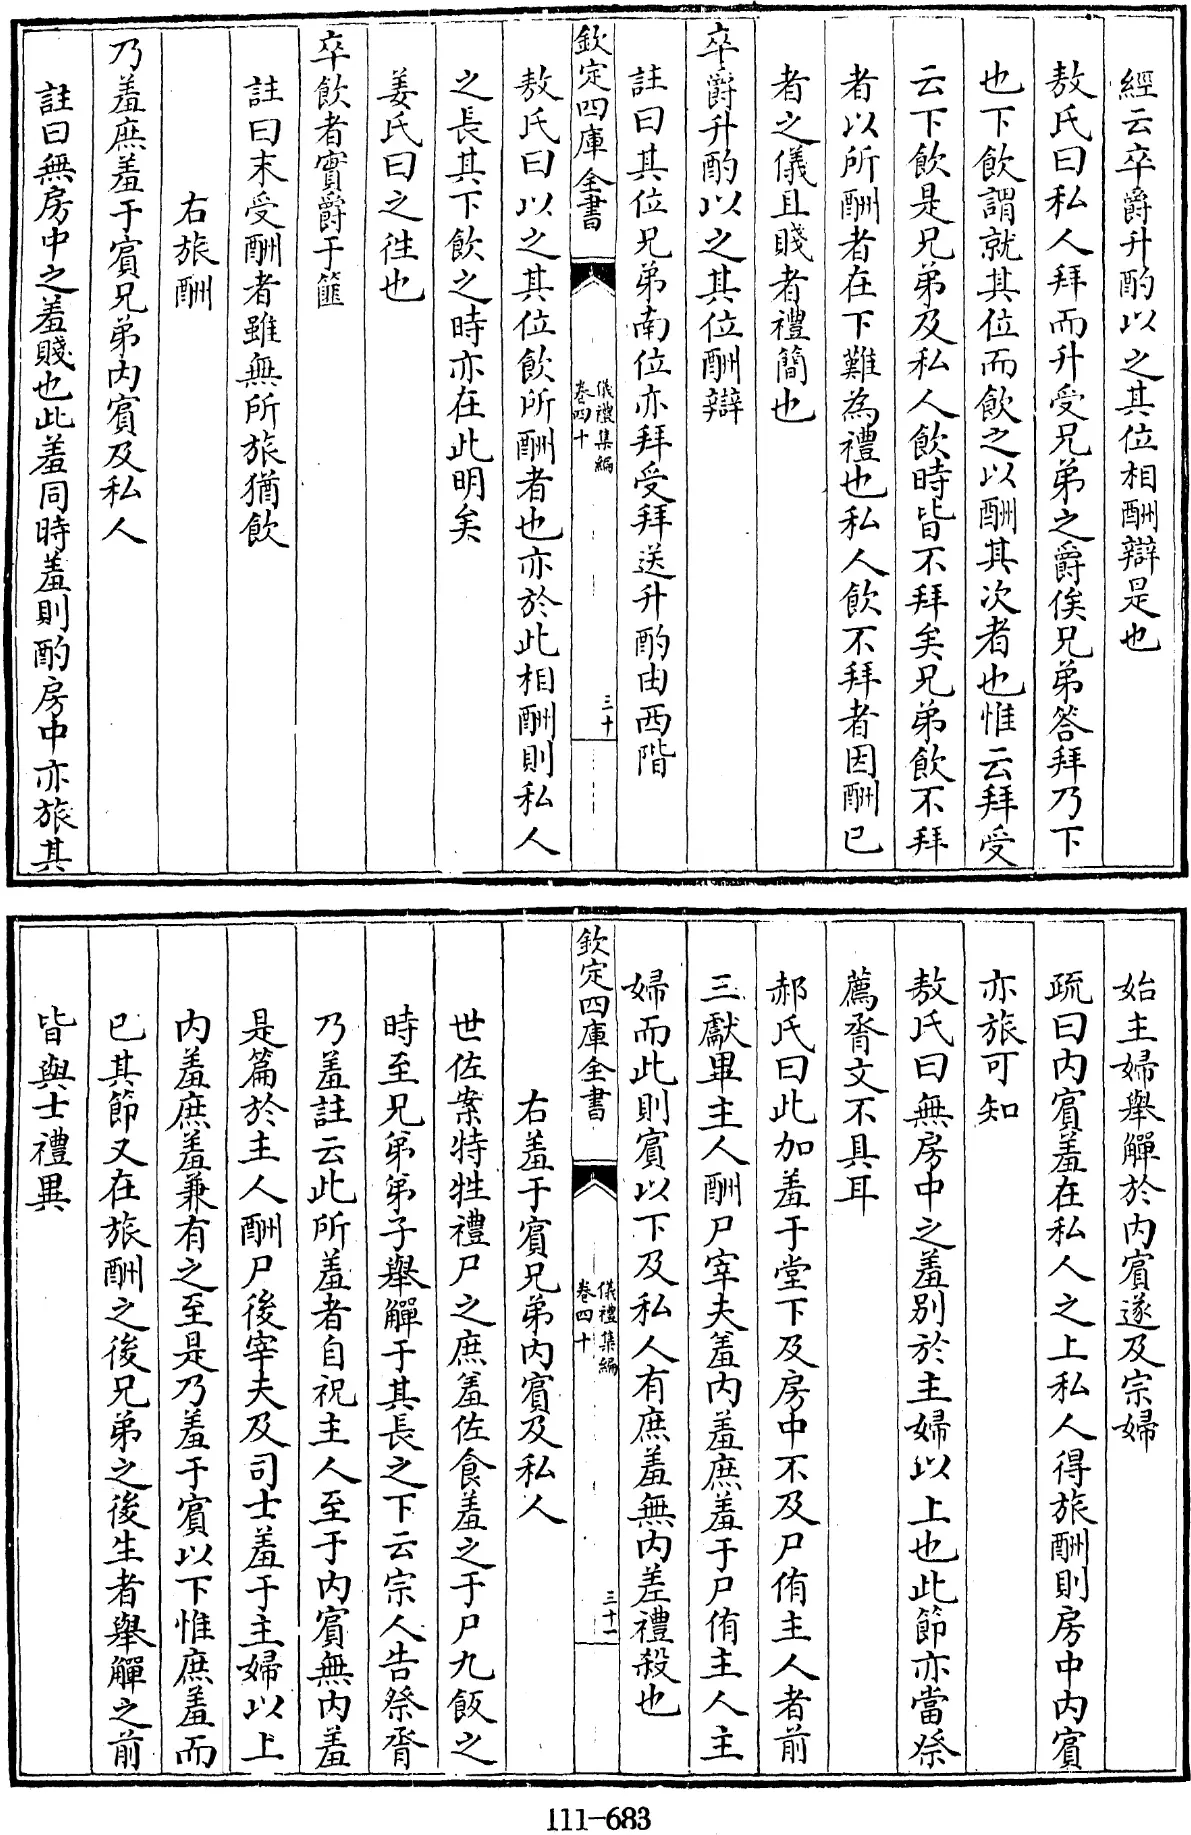 經云卒爵升酌以之其位相酬辯是也
敖氏曰私人拜而升受兄弟之爵俟兄弟答拜乃下
也下飲謂就其位而飲之以酬其次者也惟云拜受
云下飲是兄弟及私人飲時皆不拜矣兄弟飲不拜
者以所酬者在下難為禮也私人飲不拜者因酬已
者之儀且賤者禮簡也
卒爵升酌以之其位酬辯
註曰其位兄弟南位亦拜受拜送升酌由西階
欽定四庫全書
儀禮集編
卷四十
三十
敖氏曰以之其位飲所酬者也亦於此相酬則私人
之長其下飲之時亦在此明矣
姜氏曰之往也
卒飲者實爵于篚
註曰末受酬者雖無所旅猶飲
右旅酬
乃羞庶羞于賓兄弟內賓及私人
註曰無房中之羞賤也此羞同時羞則酌房中亦旅其
始主婦舉觶於內賓遂及宗婦
疏曰內賓羞在私人之上私人得旅酬則房中內賓
亦旅可知
敖氏曰無房中之羞別於主婦以上也此節亦當祭
薦脀文不具耳
郝氏曰此加羞于堂下及房中不及尸侑主人者前
三獻畢主人酬尸宰夫羞內羞庶羞于尸侑主人主
婦而此則賓以下及私人有庶羞無內差禮殺也
欽定四庫全書
儀禮集編
卷四十
三十一
右羞于賓兄弟內賓及私人
世佐案特牲禮尸之庶羞佐食羞之于尸九飯之
時至兄弟弟子舉觶于其長之下云宗人告祭脀
乃羞註云此所羞者自祝主人至于內賓無內羞
是篇於主人酬尸後宰夫及司士羞于主婦以上
內羞庶羞兼有之至是乃羞于賓以下惟庶羞而
已其節又在旅酬之後兄弟之後生者舉觶之前
皆與士禮異
111-683